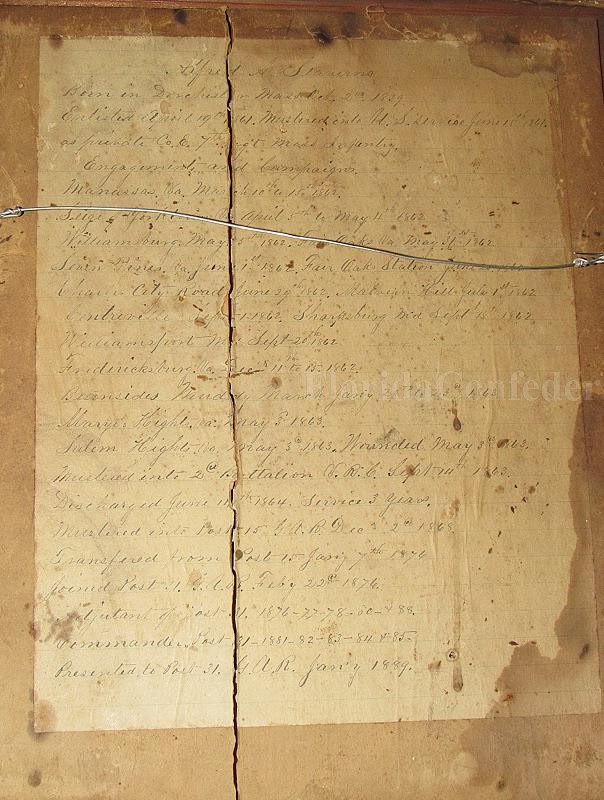 Alfred A. Stearns
Born in Dorchester Mass. Oct. 2nd 1839
Enlisted April 19th 1861. Mustered into U. S. service June 15th 1861.
as private Co. E. 7th Regt Mass Infantry.
Engagements and Campaigns.
Manassas, Va. March 10th to 15th 1862.
Siege of Yorktown Va. April 5th to May 4th 1862
Williamsburg May 5th 1862. Fair Oaks Va. May 31st 1862
Seven Pines, Va. June 1st 1862. Fair Oaks Station June 25 1862
Charles City Road June 29th 1862. Malvern Hill July 1st 1862
Centreville Sept 1 1862. Sharpsburg Md Sept 1862
Williamsport Md. Sept 20th 1862
Fredericksburg, Va. Dec. 11th to 15 1862.
Burnsides Muddy March Jan'y
FloridaConfeder
Maryes Hight, Va. May 3d 1863.
Salem Heights, Va. May 3d 1863. Wounded May 3d 1863.
Mustered into 2d Battalion V. R. C. Sept 14th 1863.
Discharged June 1864. Service 3 Years.
Mustered into Post 15 G.A.R. Dec 2d 1868.
Transfered from Post 15 Jan'y 7th 1876
Joined Post 31. G.A.R. Feb'y 22d 1876.
Adjutant of Post 31. 1876-77-78-80-&88.
Commander, Post 31-1881-82-83-84&85-
Presented to Post 31. G.A.R. Jan'y 1889.